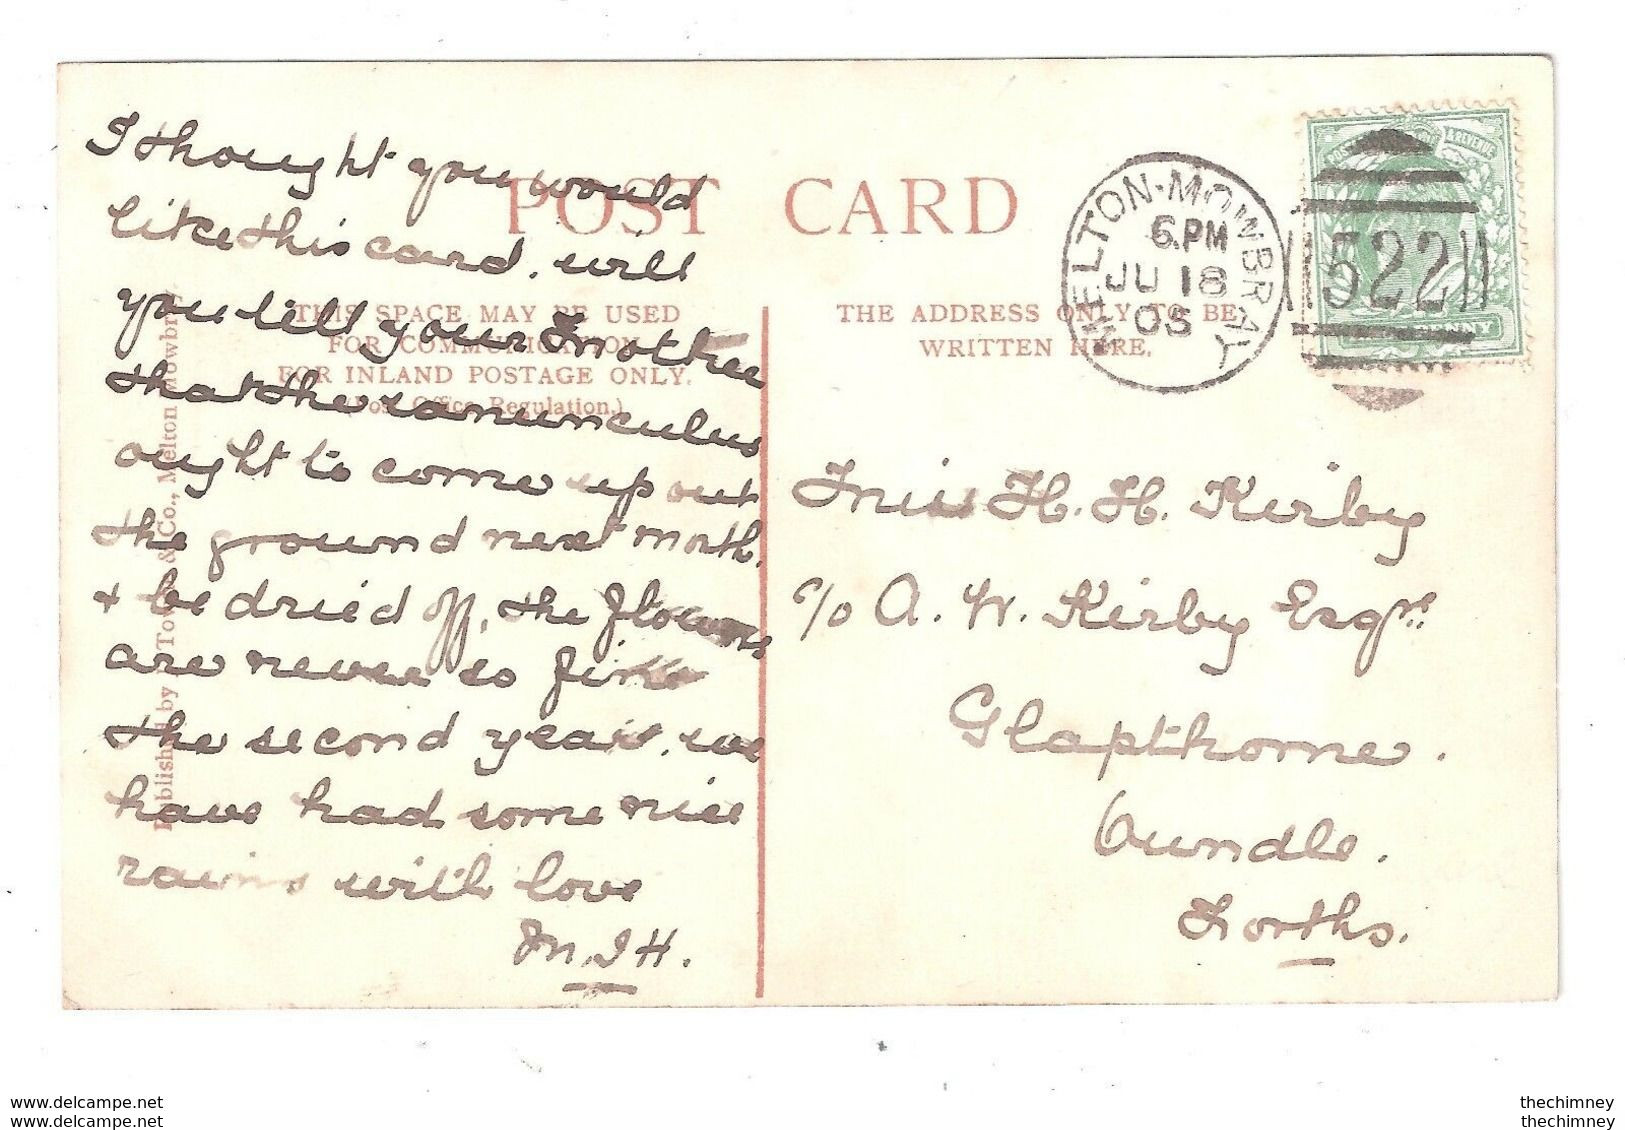 POST CARD
THIS SPACE MAY BE USED
FOR COMMUNICATION
FOR INLAND POSTAGE ONLY.
(Post Office Regulation.)
THE ADDRESS ONLY TO BE
WRITTEN HERE.
MELTON-MOWBRAY
6.PM
JU 18
522
& REVENUE
PENNY
I thought you would
like this card. will
you tell your Mother
that the ranunculus
ought to come up out
the ground next month.
& be dried off, the flowers
are never so fine
the second year. we
have had some nice
rains with love
M.J.H.
Miss H. H. Kirby
c/o A. W. Kirby Esqre
Glapthorne.
Oundle.
Norths.
& Co., Melton Mowbray
www.delcampe.net
www.delcampe.net
thechimney
thechimney